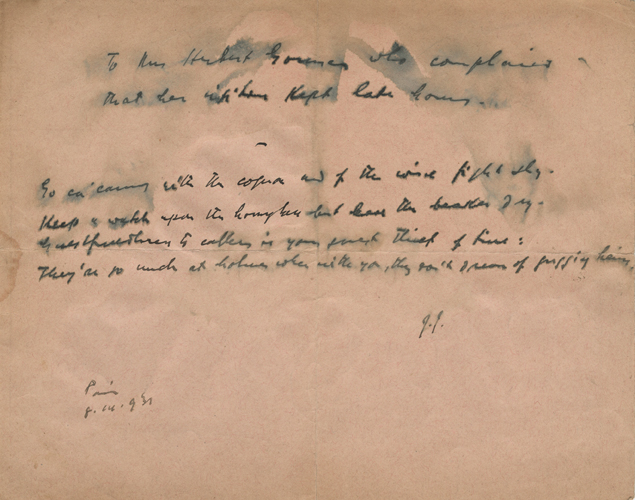 To Mrs Herbert Gorman who complained
that her visitors kept late hours.
Go ca'canny with the cognac and of the wine fight shy.
Keep a watch upon the hourglass but leave the beaker dry.
Guestfriendliness to callers is your surest thief of time:
They're so much at holmes when with you, they can't dream of
J.J.
Paris